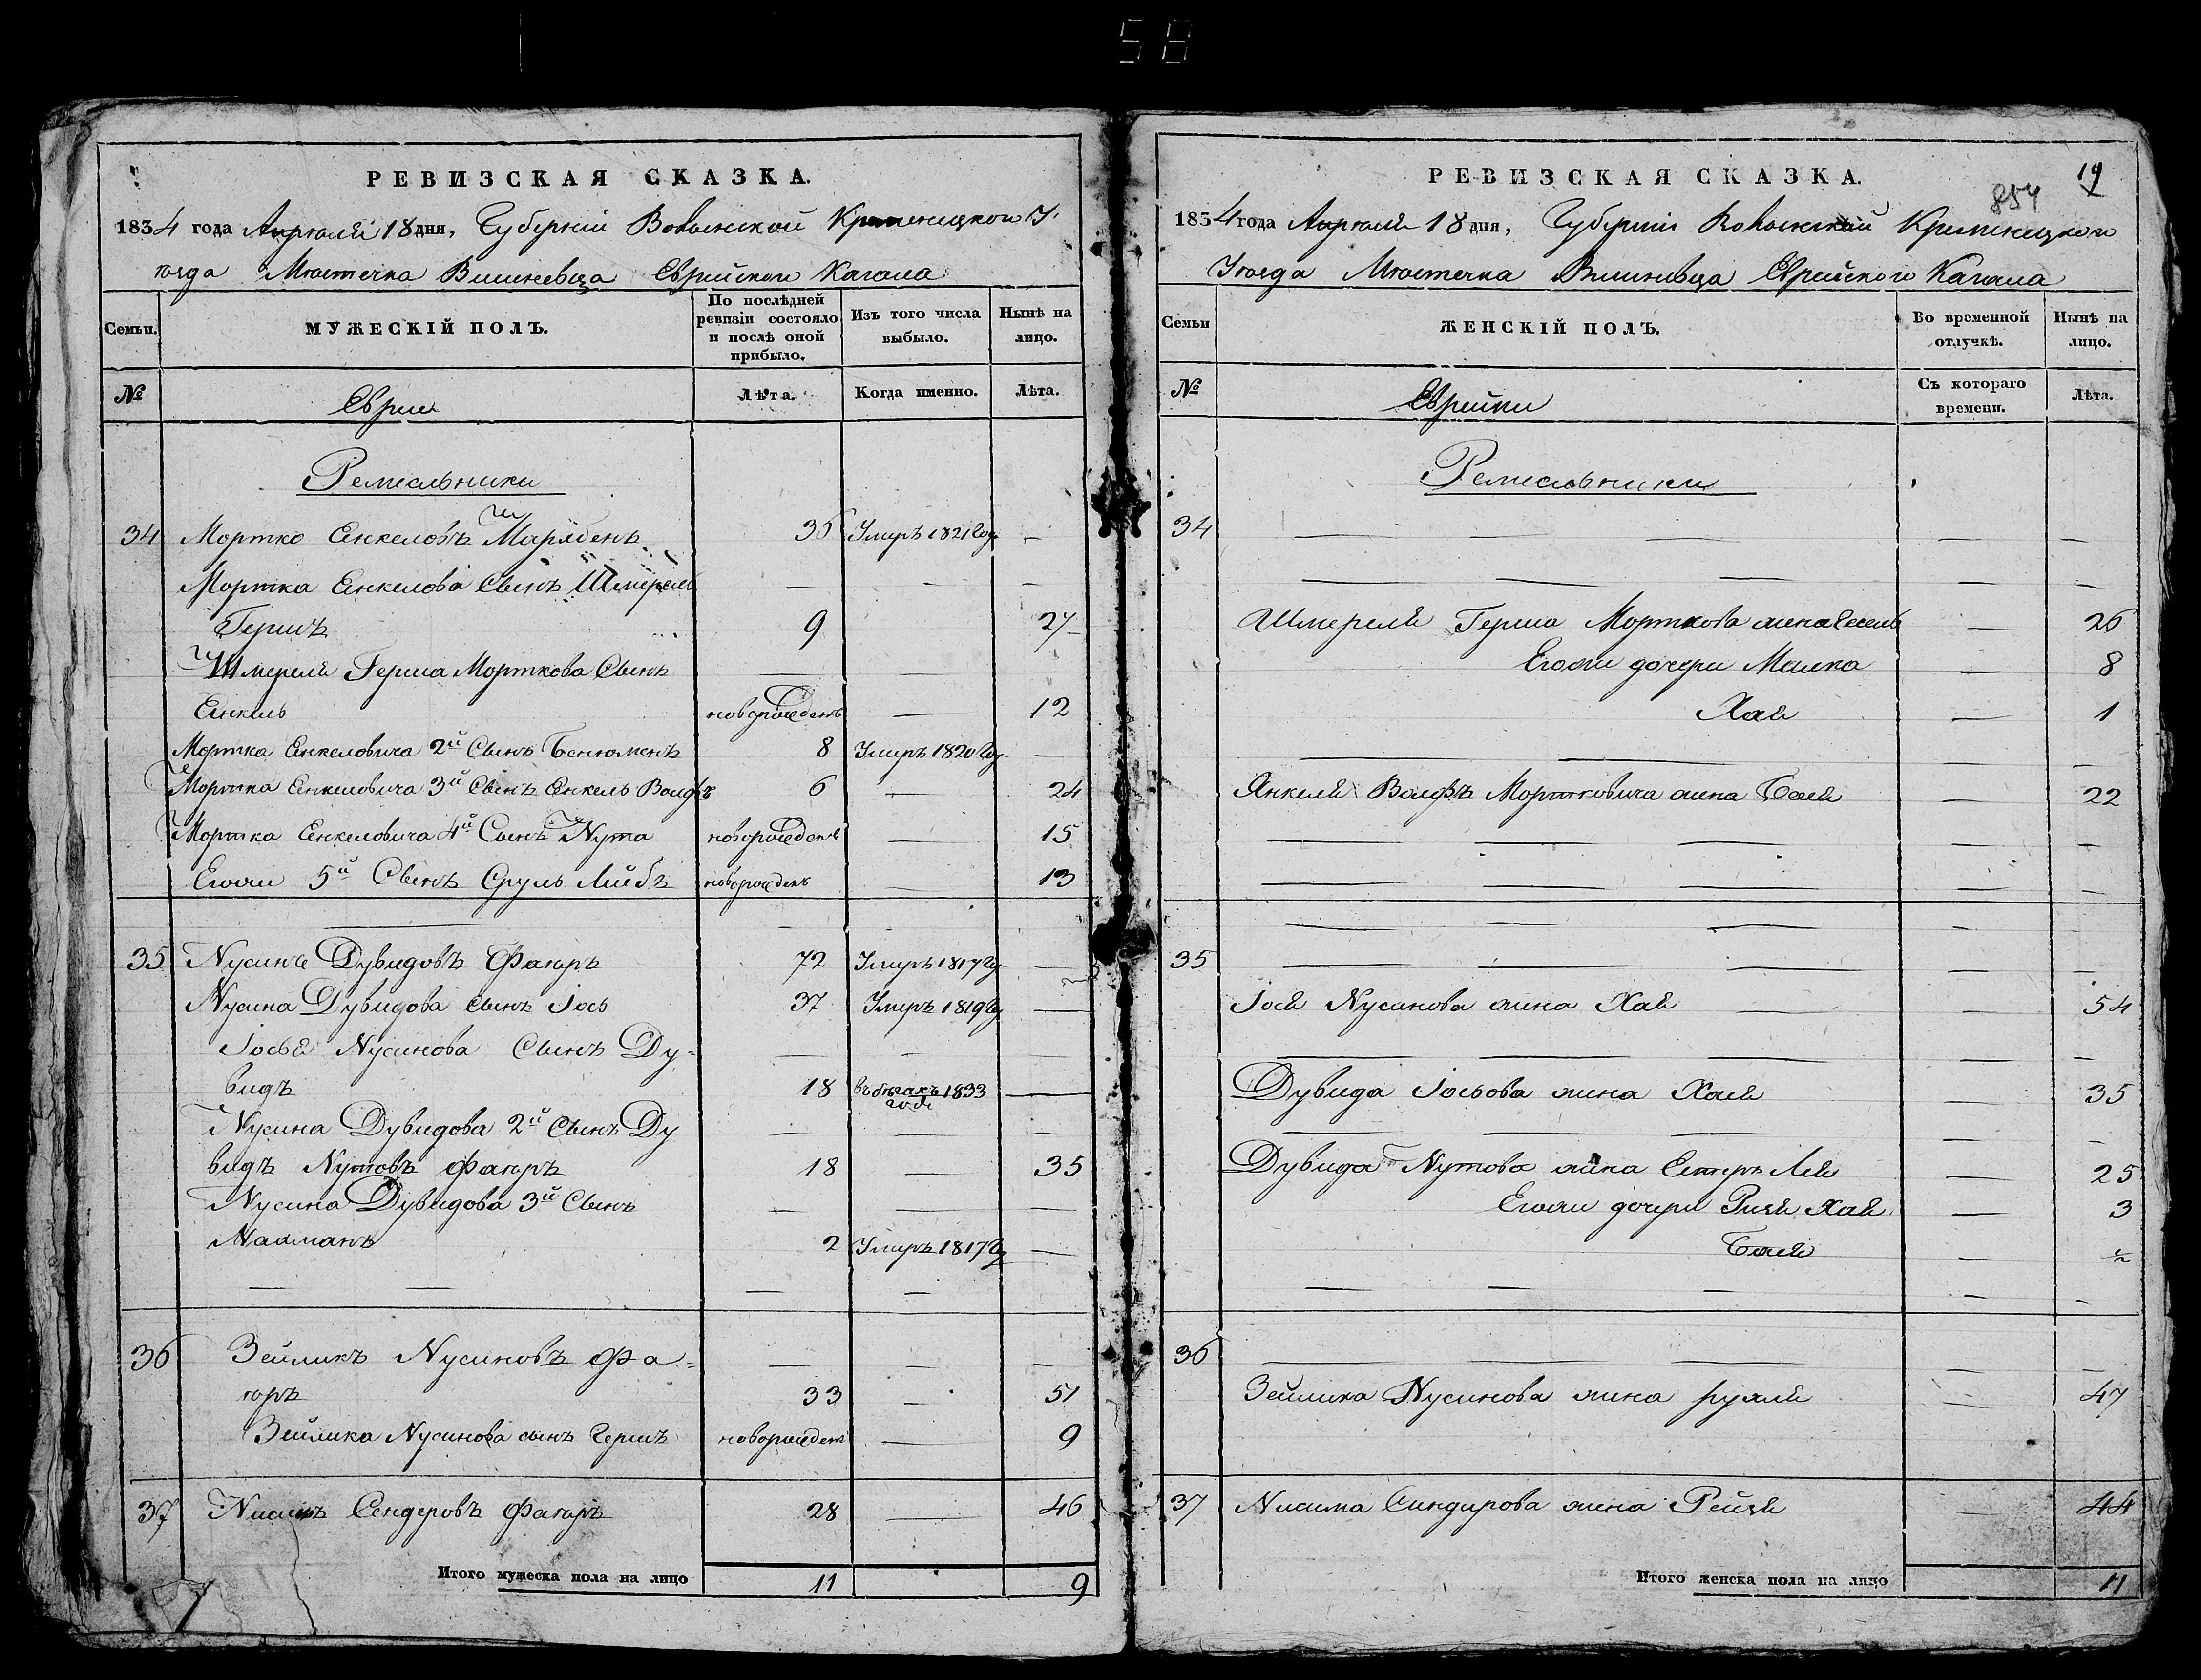 58
РЕВИЗСКАЯ СКАЗКА.
1834 года Апрѣля 18 дня, Губерніи Волынской Кременецкой У
ѣзда Мѣстечка Вишневца Еврейского Кагала
Семьи.
МУЖЕСКІЙ ПОЛЪ.
По послѣдней ревизіи состояло и послѣ оной прибыло.
Изъ того числа выбыло.
Нынѣ на лицо.
№
Евреи
Лѣта.
Когда именно.
Лѣта.
Ремесльники
34 Мортко Енкеловъ 36 Умеръ 1821 Год —
Мортка Енкелова Сынъ Шмерель — — —
Гершъ 9 27
Шмереля Герша Морткова Сынъ — —
Енкель новорожденъ — 12
Мортка Енкеловича 2й Сынъ Бенюменъ 8 Умеръ 1820 Год —
Мортка Енкеловича 3й Сынъ Енкель Волфъ 6 — 24
Мортка Енкеловича 4й Сынъ Нута новорожденъ — 15
Егожи 5й Сынъ Сруль Лейбъ новорожденъ — 13
35 Нусинъ Дувидовъ Фагоръ 72 Умеръ 1817 Год —
Нусина Дувидова сынъ Іось 37 Умеръ 1819 Год —
Іосья Нусинова Сынъ Ду- — — —
видъ 18 Въ бѣгахъ 1833 года —
Нусина Дувидова 2й Сынъ Ду — — —
видъ Нутовъ Фагоръ 18 — 35
Нусина Дувидова 3й Сынъ — — —
Нахманъ 2 Умеръ 1817 Год —
36 Зейликъ Нусиновъ Фа- — — —
горъ 33 — 51
Зейлика Нусинова сынъ Гершъ новорожденъ — 9
37 Сендеровъ Фагоръ 28 — 46
Итого мужеска пола на лицо 11 9
19
854
РЕВИЗСКАЯ СКАЗКА.
1834 года Апрѣля 18 дня, Губерніи Волынской Кременецкого
Уѣзда Мѣстечка Вишневца Еврейского Кагала
Семьи
ЖЕНСКІЙ ПОЛЪ.
Во временной отлучкѣ.
Нынѣ на лицо.
№
Еврейки
Съ котораго времени.
Лѣта.
Ремесльники
34 — — — — —
Шмереля Герша Морткова жена — 26
Егожи дочери Малка — 8
Хая — 1
Янкеля Волфъ Мортковича жена Бася — 22
35 — — — — —
Іося Нусинова жина Хая — 54
Дувида Іосьова жина Хая — 35
Дувида Нутова жина Естеръ Лея — 25
Егожи дочери Хая — 3
Бася — ½
36 — — — — —
Зейлика Нусинова жина Рухля — 47
37 Нисима Синдирова жина Рейзя — 44
Итого женска пола на лицо 11